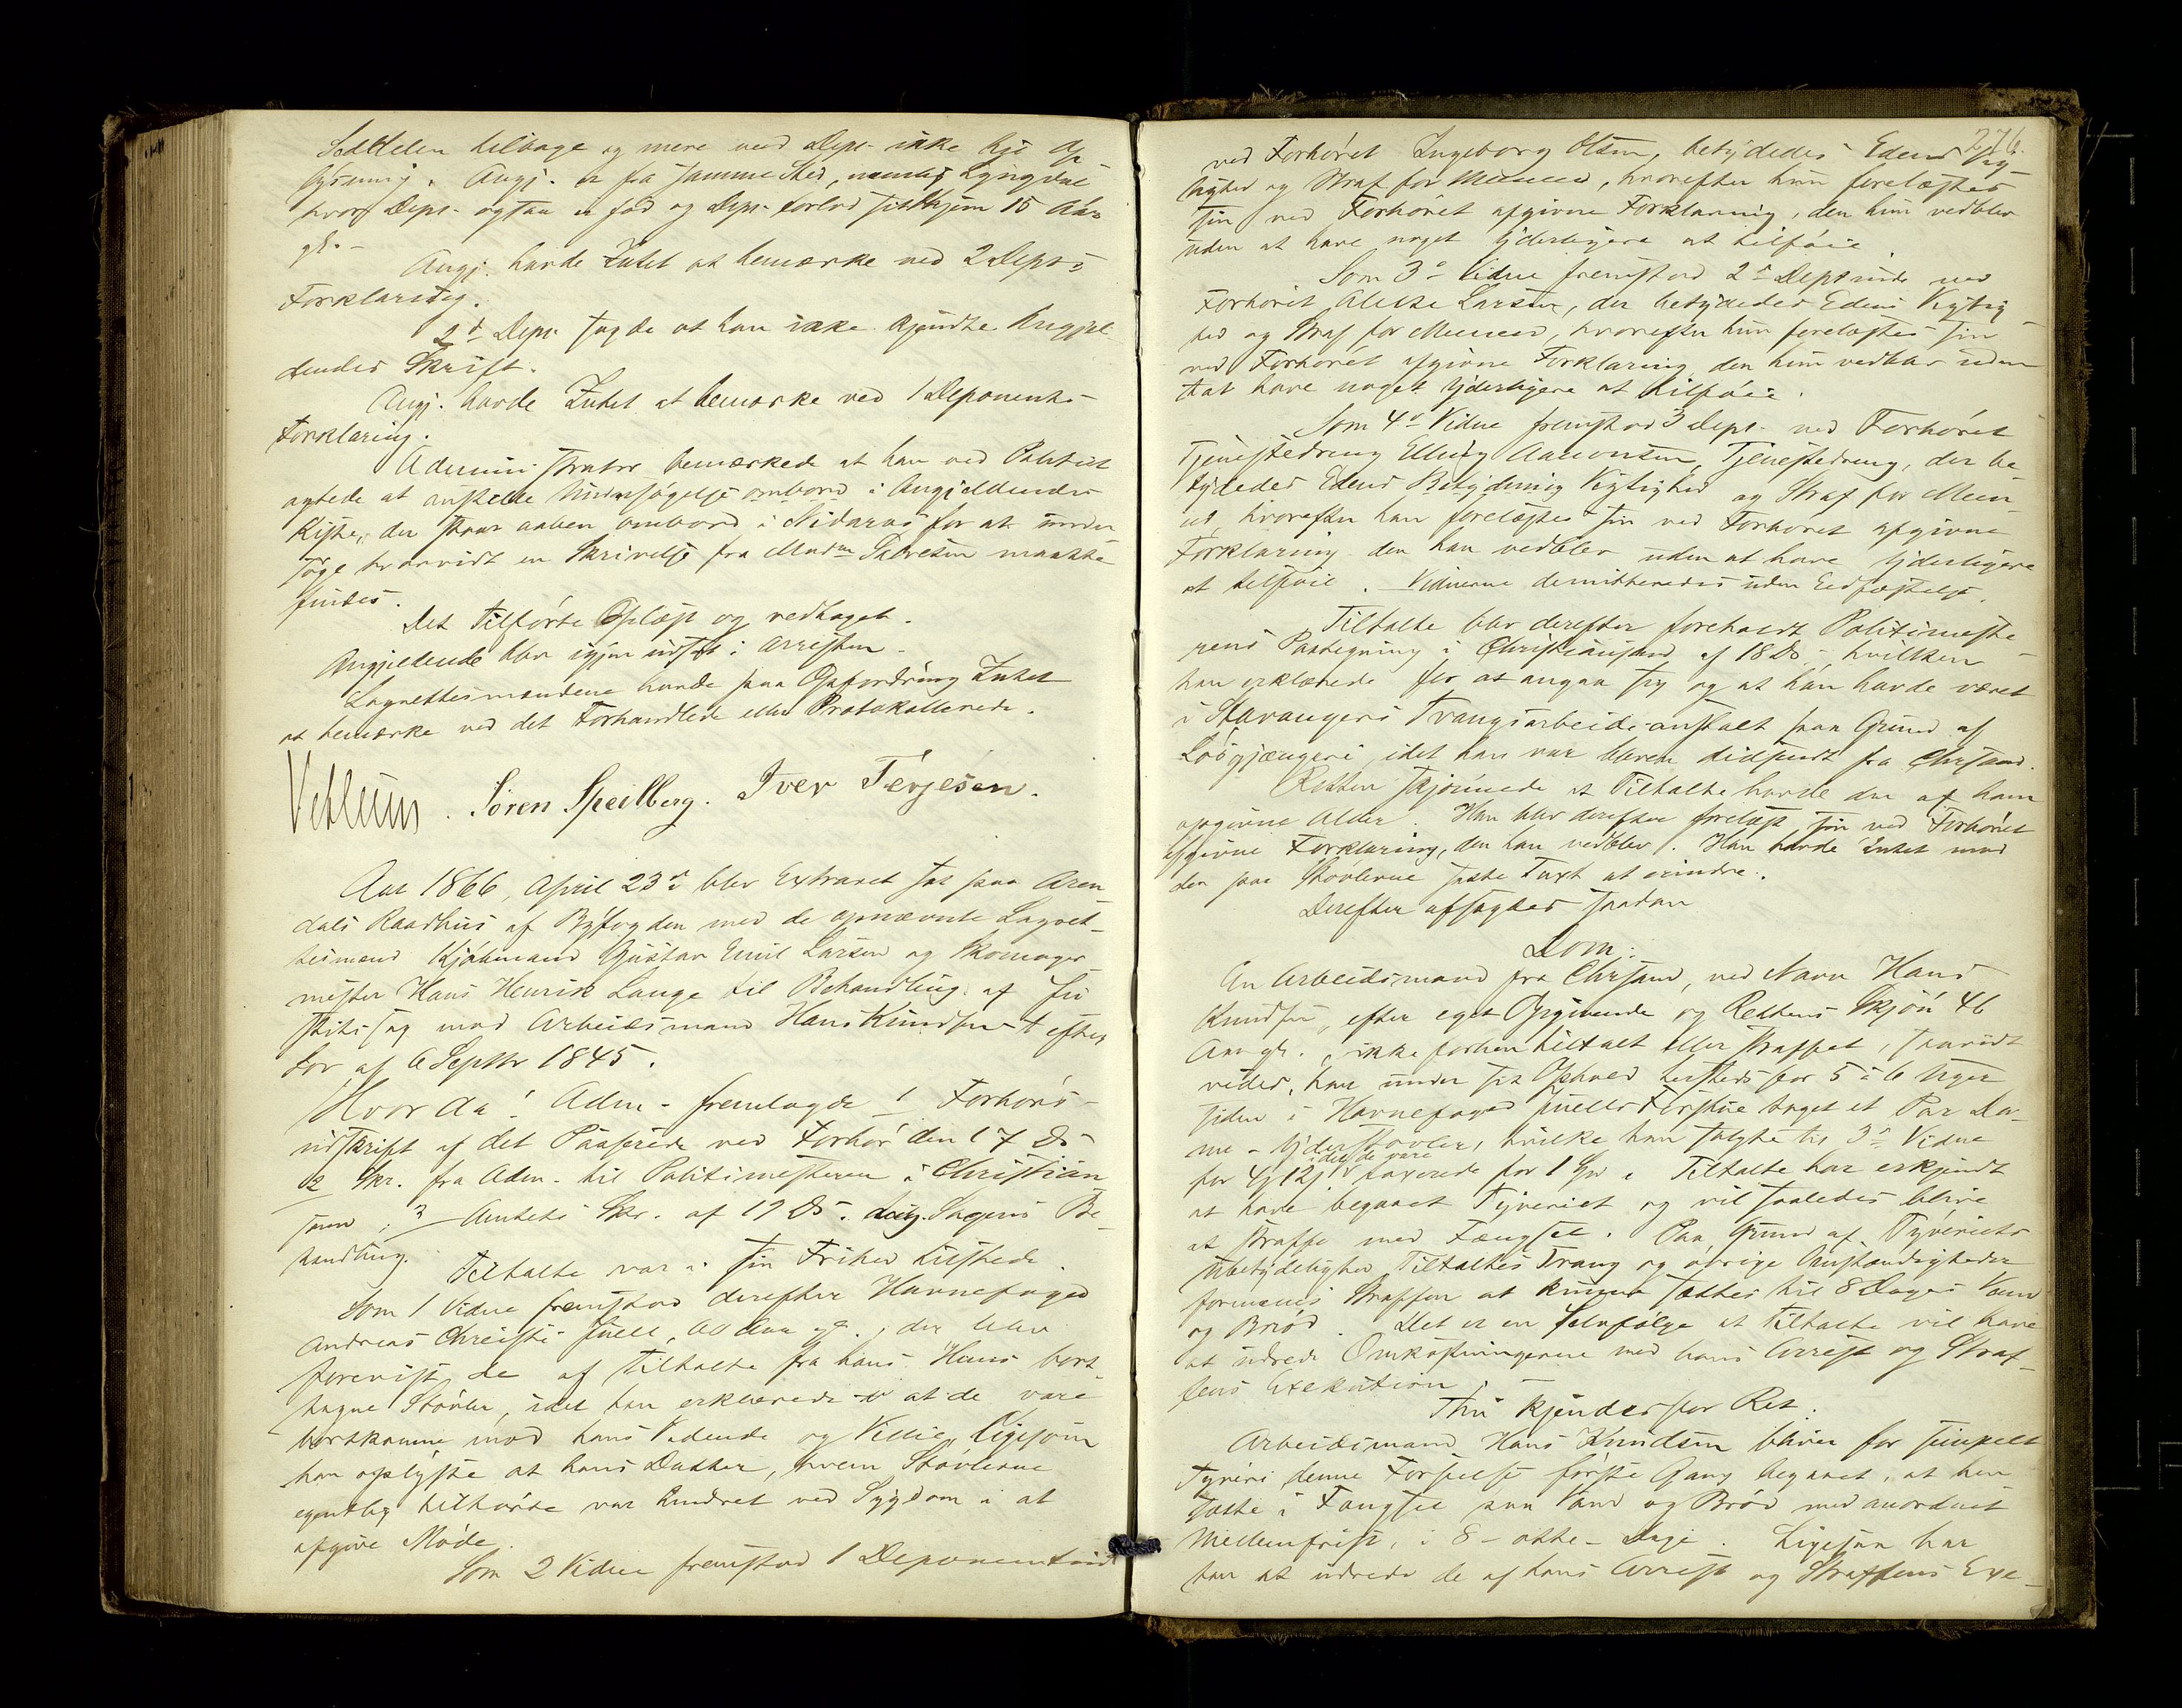 Seddelen tilbage og mere veed Depe. ikke hje Op
lysning. Angj. er fra samme Sted, nemlig Lyngdal
hvor Depe. ogsaa er fød og Depe. forlod sit Hjem 15 Aar
gl. -
Angj. havde Intet at bemærke ved 2 Deps
Forklaring.
2d Depe. sagde at han ikke kjendte Angjel
dendes Skrift.
Angj. havde Intet at bemærke ved 1 Deponents
Forklaring.
Administrator bemærkede at han ved Politiet
agtede at anstille Undersøgelse ombord i Angjeldendes
Kiste, der staar aaben ombord i Nidaros for at under
søge hvorvidt en Skrivelse fra Madm Salvesen maatte
findes.
Det tilførte Oplæst og vedtaget.
Angjeldende blev igjen indsat i Arresten.
Lagrettesmændene havde paa Opfordring Intet
at bemærke ved det Forhandlede eller Protokollerede.
Søren Speilberg. Iver Terjesen.
Aar 1866, April 23de blev Extraret sat paa Aren
dals Raadhus af Byfogden med de opnævnte Lagret
tesmænd Kjøbmand Gustav Emil Larsen og Skomager
mester Hans Henrik Lange til Behandling af Ju
stitssag mod Arbeidsmand Hans Knudsen efter
Lov af 6 Septbr 1845.
Hvorda! Adm. fremlagde 1 Forhørs-
udskrift af det Passerede ved Forhør den 17 Ds
2 Skr. fra Adm. til Politimesteren i Christian
sand, 3 Amtets Skr. af 19 Ds. Sagens Be
handling.
Tiltalte var i sin Frihed tilstede.
Som 1 Vidne fremstod derefter Havnefoged
Andreas Christie Juell, Aar gl., der blev
forevist de af Tiltalte fra hans Huus bort
tagne Støvler, idet han erklærede at de vare
bortkomne imod hans Vidende og Villie, ligesom
han oplyste at hans Datter, hvem Støvlerne
egentlig tilhørte var hindret ved Sygdom i at
afgive Møde.
Som 2 Vidne fremstod 1 Deponentinde
276.
ved Forhøret Ingeborg Olsen, betydedes Edens Vig
tighed og Straf for Meneed, hvorefter hun forelæstes
sin ved Forhøret afgivne Forklaring, den hun vedblev
uden at have noget yderligere at tilføie.
Som 3de Vidne fremstod 2de Deptinde ved
Forhøret Larsen, der betydedes Edens Vigtig
hed og Straf for Meneed, hvorefter hun forelæstes sin
ved Forhøret afgivne Forklaring den hun vedblev uden
at have noget yderligere at tilføie.
Som 4de Vidne fremstod 3 Depe. ved Forhøret
Tjenestedreng Elling Aanonsen, Tjenestedreng, der be
tydedes Edens Betydning Vigtighed og Straf for Men
eed, hvorefter han forelæstes sin ved Forhøret afgivne
Forklaring den han vedblev uden at have yderligere
at tilføie. Vidnerne demitteredes uden Eedfæstelse.
Tiltalte blev derefter foreholdt Politimeste
rens Paategning i Christiansand af 18 Ds, hvilken
han erklærede for at angaa sig og at han havde været
i Stavangers Tvangsarbeidsanstalt paa Grund af
Løsgjængeri, idet han var bleven didsendt fra Chrsand.
Retten skjønnede at Tiltalte havde den af ham
opgivne Alder. Han blev derefter forelæst sin ved Forhøret
afgivne Forklaring, den han vedblev. Han havde Intet mod
den paa Støvlerne satte Taxt at erindre.
Derefter afsagdes saadan
Dom:
En Arbeidsmand fra Chrsand, ved Navn Hans
Knudsen, efter eget Opgivende og Rettens Skjøn 46
Aar gl., ikke forhen tiltalt eller straffet, saavidt
vides, har under sit Ophold hersteds for 5 à 6 Uger
siden i Havnefoged Juells Forstue taget et Par Da
me-Støvler, hvilke han solgte til 3de Vidne
for 4 12 idet de vare taxerede for 1 Spd. Tiltalte har erkjendt
at have begaaet Tyveriet og vil saaledes blive
at straffe med Fængsel. Paa Grund af Tyveriets
Ubetydelighed Tiltaltes Trang og øvrige Omstændigheder
formenes Straffen at kunne sættes til 8 Dages Vand
og Brød. Det er en Selvfølge at Tiltalte vil have
at udrede Omkostningerne med hans Arrest og Straf
fens Exekution.
Thi kjendes for Ret:
Arbeidsmand Hans Knudsen bliver for simpelt
Tyveri denne Forseelse første Gang begaaet, at hen
sætte i Fængsel paa Vand og Brød med anordnet
Mellemfrist, i 8 - otte - Dage. Ligesaa har
han at udrede de af hans Arrest og Straffens Exe-